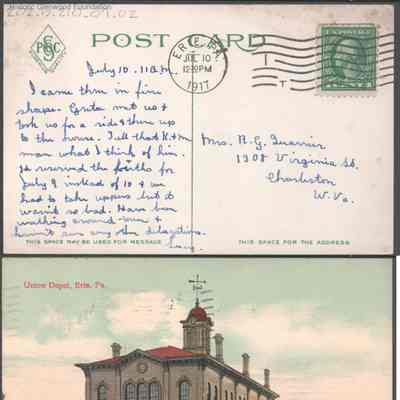 Historic Glenwood Foundation
2012.210.09.02
PSC
POST CARD
ERIE, PA.
JUL 10
12-30PM
1917
U.S. POSTAGE
July 10. 11 A.M.
I came thru in fine
shape. Greta met us &
took us for a ride & then up
to the house. Tell that R.R.
man what I think of him.
He reserved the fourths for
July 9 instead of 10 & we
had to take uppers but it
wasn't so bad. Have been
walking around some &
haven't seen any other delegations.
Mrs. R.G. Quarrier
1308 Virginia St.
Charleston
W. Va.
THIS SPACE MAY BE USED FOR MESSAGE
THIS SPACE FOR THE ADDRESS
Union Depot, Erie, Pa.